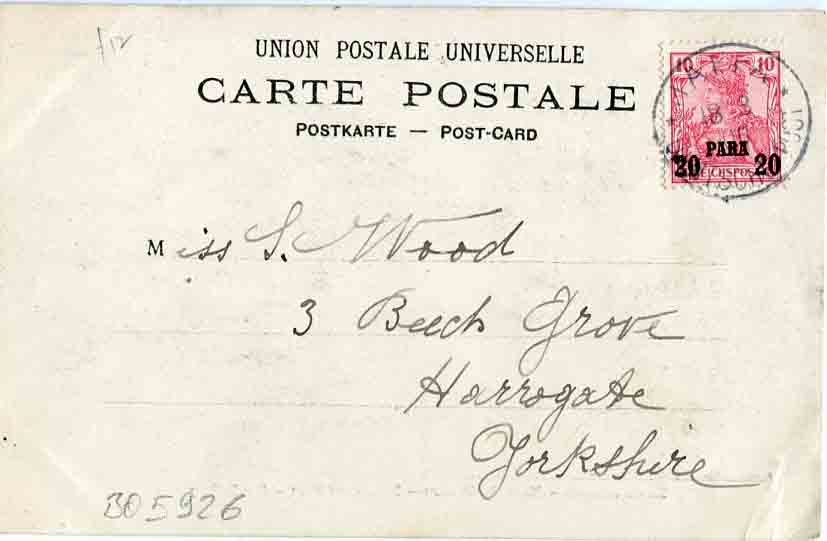 f12
UNION POSTALE UNIVERSELLE
CARTE POSTALE
POSTKARTE — POST-CARD
10 10
PARA
20 20
REICHSPOST
JAFFA
18 3
Miss S. Wood
3 Beech Grove
Harrogate
Yorkshire
BO 5926